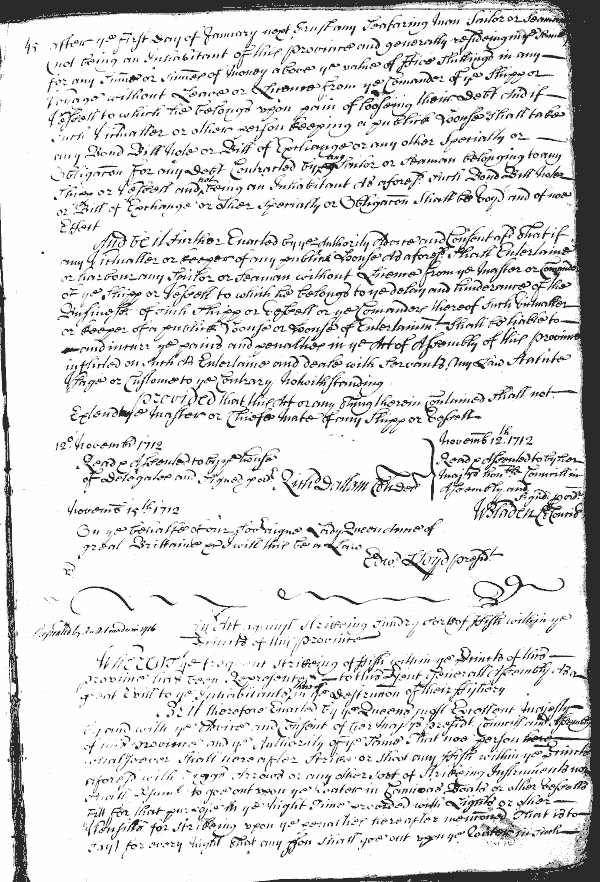 45 after ye First day of January next Trust any Seafaring Man Sailor or Seaman
not being an Inhabitant of this Province and generally residing in ye same
for any Sume or Sumes of money above ye value of Five Shillings in any
Voyage without Leave or Licence from ye Comander of ye Shipp or
Vessell to which he belongs upon pain of looseing their Debt And if
Such Victualler or other person keeping a publick House shall take
any Bond Bill Note or Bill of Exchange or any other Specialty or
Obligacon for any Debt Contracted by any Sailor or Seaman belonging to any
Shipp or Vessell and not being an Inhabitant As aforesd such Bond Bill Note
or Bill of Exchange or other Specialty or Obligacon Shall be Voyd and of noe
Effect
And be it Further Enacted by ye Authority Advice and Consent afsd That if
any Victualler or keeper of any publick House As aforesd Shall Entertaine
or harbour any Sailor or Seaman without Licence from ye Master or Comander
of ye Shipp or Vessell to which he belongs to ye delay and hinderance of the
Buisnesse of such Shipp or Vessell or ye Comanders thereof Such Victualler
or keeper of a publick House or House of Entertainmt Shall be liable to
and incurr ye pains and penalties in ye Act of Assembly of this province
inflicted on Such As Entertaine and deale with Servants Any Law Statute
Usage or Custome to ye Contrary Notwithstanding
Provided that this Act or any thing therein Contained shall not
Extend to ye Master or Chiefe Mate of any Shipp or Vessell
12o Novembr 1712
Read & Assented to by ye house
of Delegates and Signed p ord
Richd Dallam Cl
Novembr 12th 1712
Read & Assented to by her
Majtys honble Councill in
Assembly and
Signd p ord
W Bladen Cl Council
Novembr 15th 1712
On ye behalfe of our Soveraigne Lady Queen Anne of
great Brittaine &c I will this be a Law
Edwd Lloyd presidt
Repealed by 1716
An Act against Strikeing Sundry sorts of Fish within ye
Precincts of this Province
Whereas ye frequent Strikeing of Fish within ye Precincts of this
province has been Represented to this Prsent Generall Assembly As a
great Evill to ye Inhabitants in ye destruction of their Fishery
Be it therefore Enacted by ye Queens most Excellent Majesty
by and with ye Advice and Consent of her Majtys presidt Councill and Assembly
of this province and ye Authority of ye Same That noe person
whatsoever Shall hereafter Strike or Shoot any Fish within ye Precincts
aforesd with Arrows or any other Sort of Strikeing Instruments nor
Shall to goe out upon ye Water in Canooas Boats or other Vessells
for that purpose in ye Night Time provided with Lights or other
Utensills for Strikeing upon ye penalties hereafter mentioned That is to
say for every Night that any pson shall goe out upon ye Water in Such